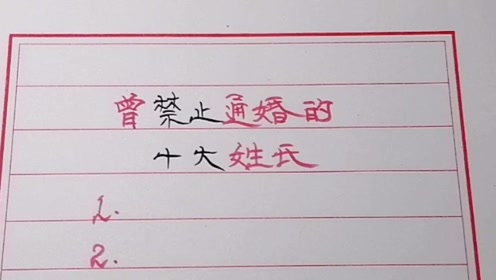 曾禁止通婚的
十大姓氏
1.
2.